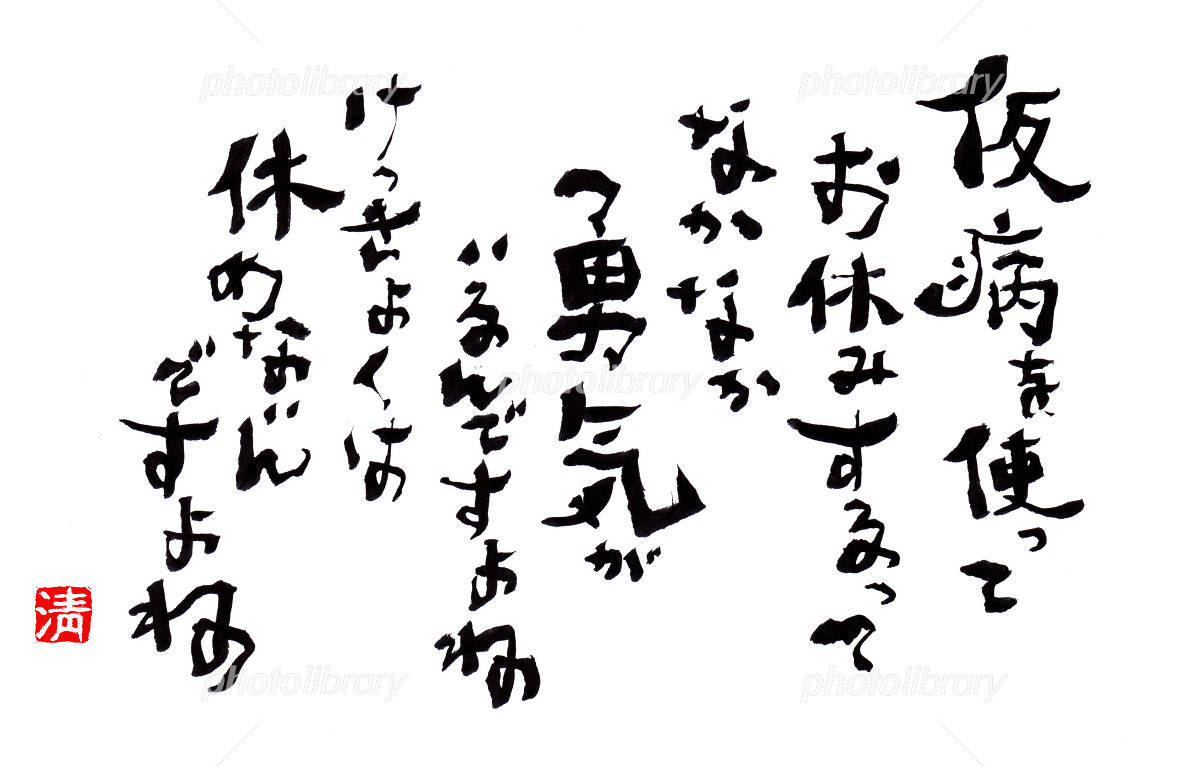 仮病を使って
お休みするって
なかなか
勇気が
いるんですよね
けっきょくは
休めないん
ですよね
清
photolibrary
photolibrary
photolibrary
photolibrary
photolibrary